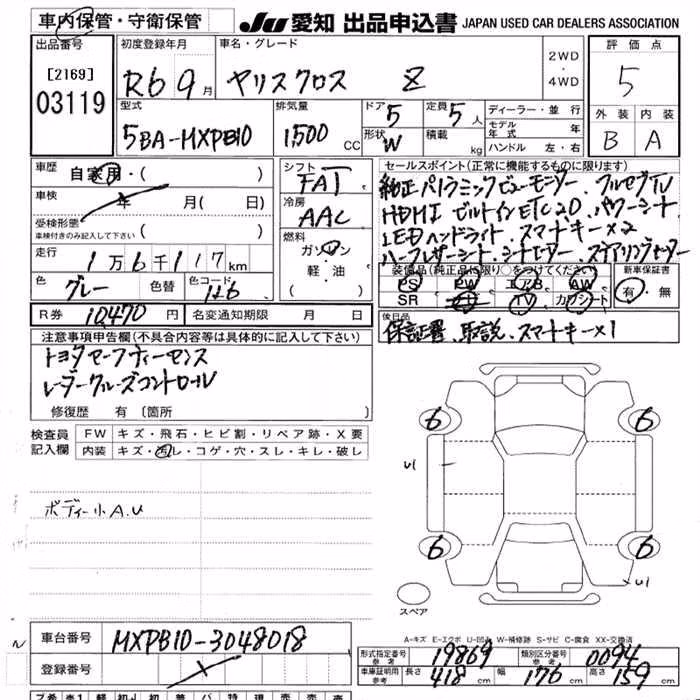 車内保管・守衛保管 JU 愛知 出品申込書 JAPAN USED CAR DEALERS ASSOCIATION
出品番号 [2169] 03119
初度登録年月 R6 9月
車名・グレード ヤリスクロス Z 2WD・4WD
評価点 5
外装 内装
B A
型式 5BA-MXPB10
排気量 1500 CC
ドア 5 定員 5人
形状 W 積載 kg
ディーラー・並行
モデル年式
ハンドル 左・右
車歴 自家用・( )
車検 年 月( 日)
受検形態 車検付きのみ記入して下さい ( )
走行 1万6千117km
色 グレー 色替 色コード 1L6
R券 10470円 名変通知期限 月 日
シフト FAT
冷房 AAC
燃料 ガソリン 軽・油
セールスポイント(正常に機能するものに限ります)
純正パノラミックビューモニター、フルセグTV
HDMI ビルトインETC2.0、パワーシート
LEDヘッドライト スマートキー×2
ハーフレザーシート、シートヒーター、ステアリングヒーター
装備品(純正品に限り○をつけてください) 新車保証書
PS PW エアB AW 有・無
SR TV カワシート
後日品
保証書、取説、スマートキー×1
注意事項申告欄(不具合内容等は具体的に記入して下さい)
トヨタセーフティーセンス
レーダークルーズコントロール
修復歴 有 〔箇所
検査員記入欄 FW キズ・飛石・ヒビ割・リペア跡・X要
内装 キズ・汚レ・コゲ・穴・スレ・キレ・破レ
ボディー小A.U
6 6
U1
6 6
U1
スペア
A-キズ E-エクボ U-凹ミ W-補修跡 S-サビ C-腐食 XX-交換済
車台番号 MXPB10-3048018
登録番号
形式指定番号 参考 19869 類別区分番号 参考 0094
車庫証明用 参考 長さ 418cm 幅 176cm 高さ 159cm